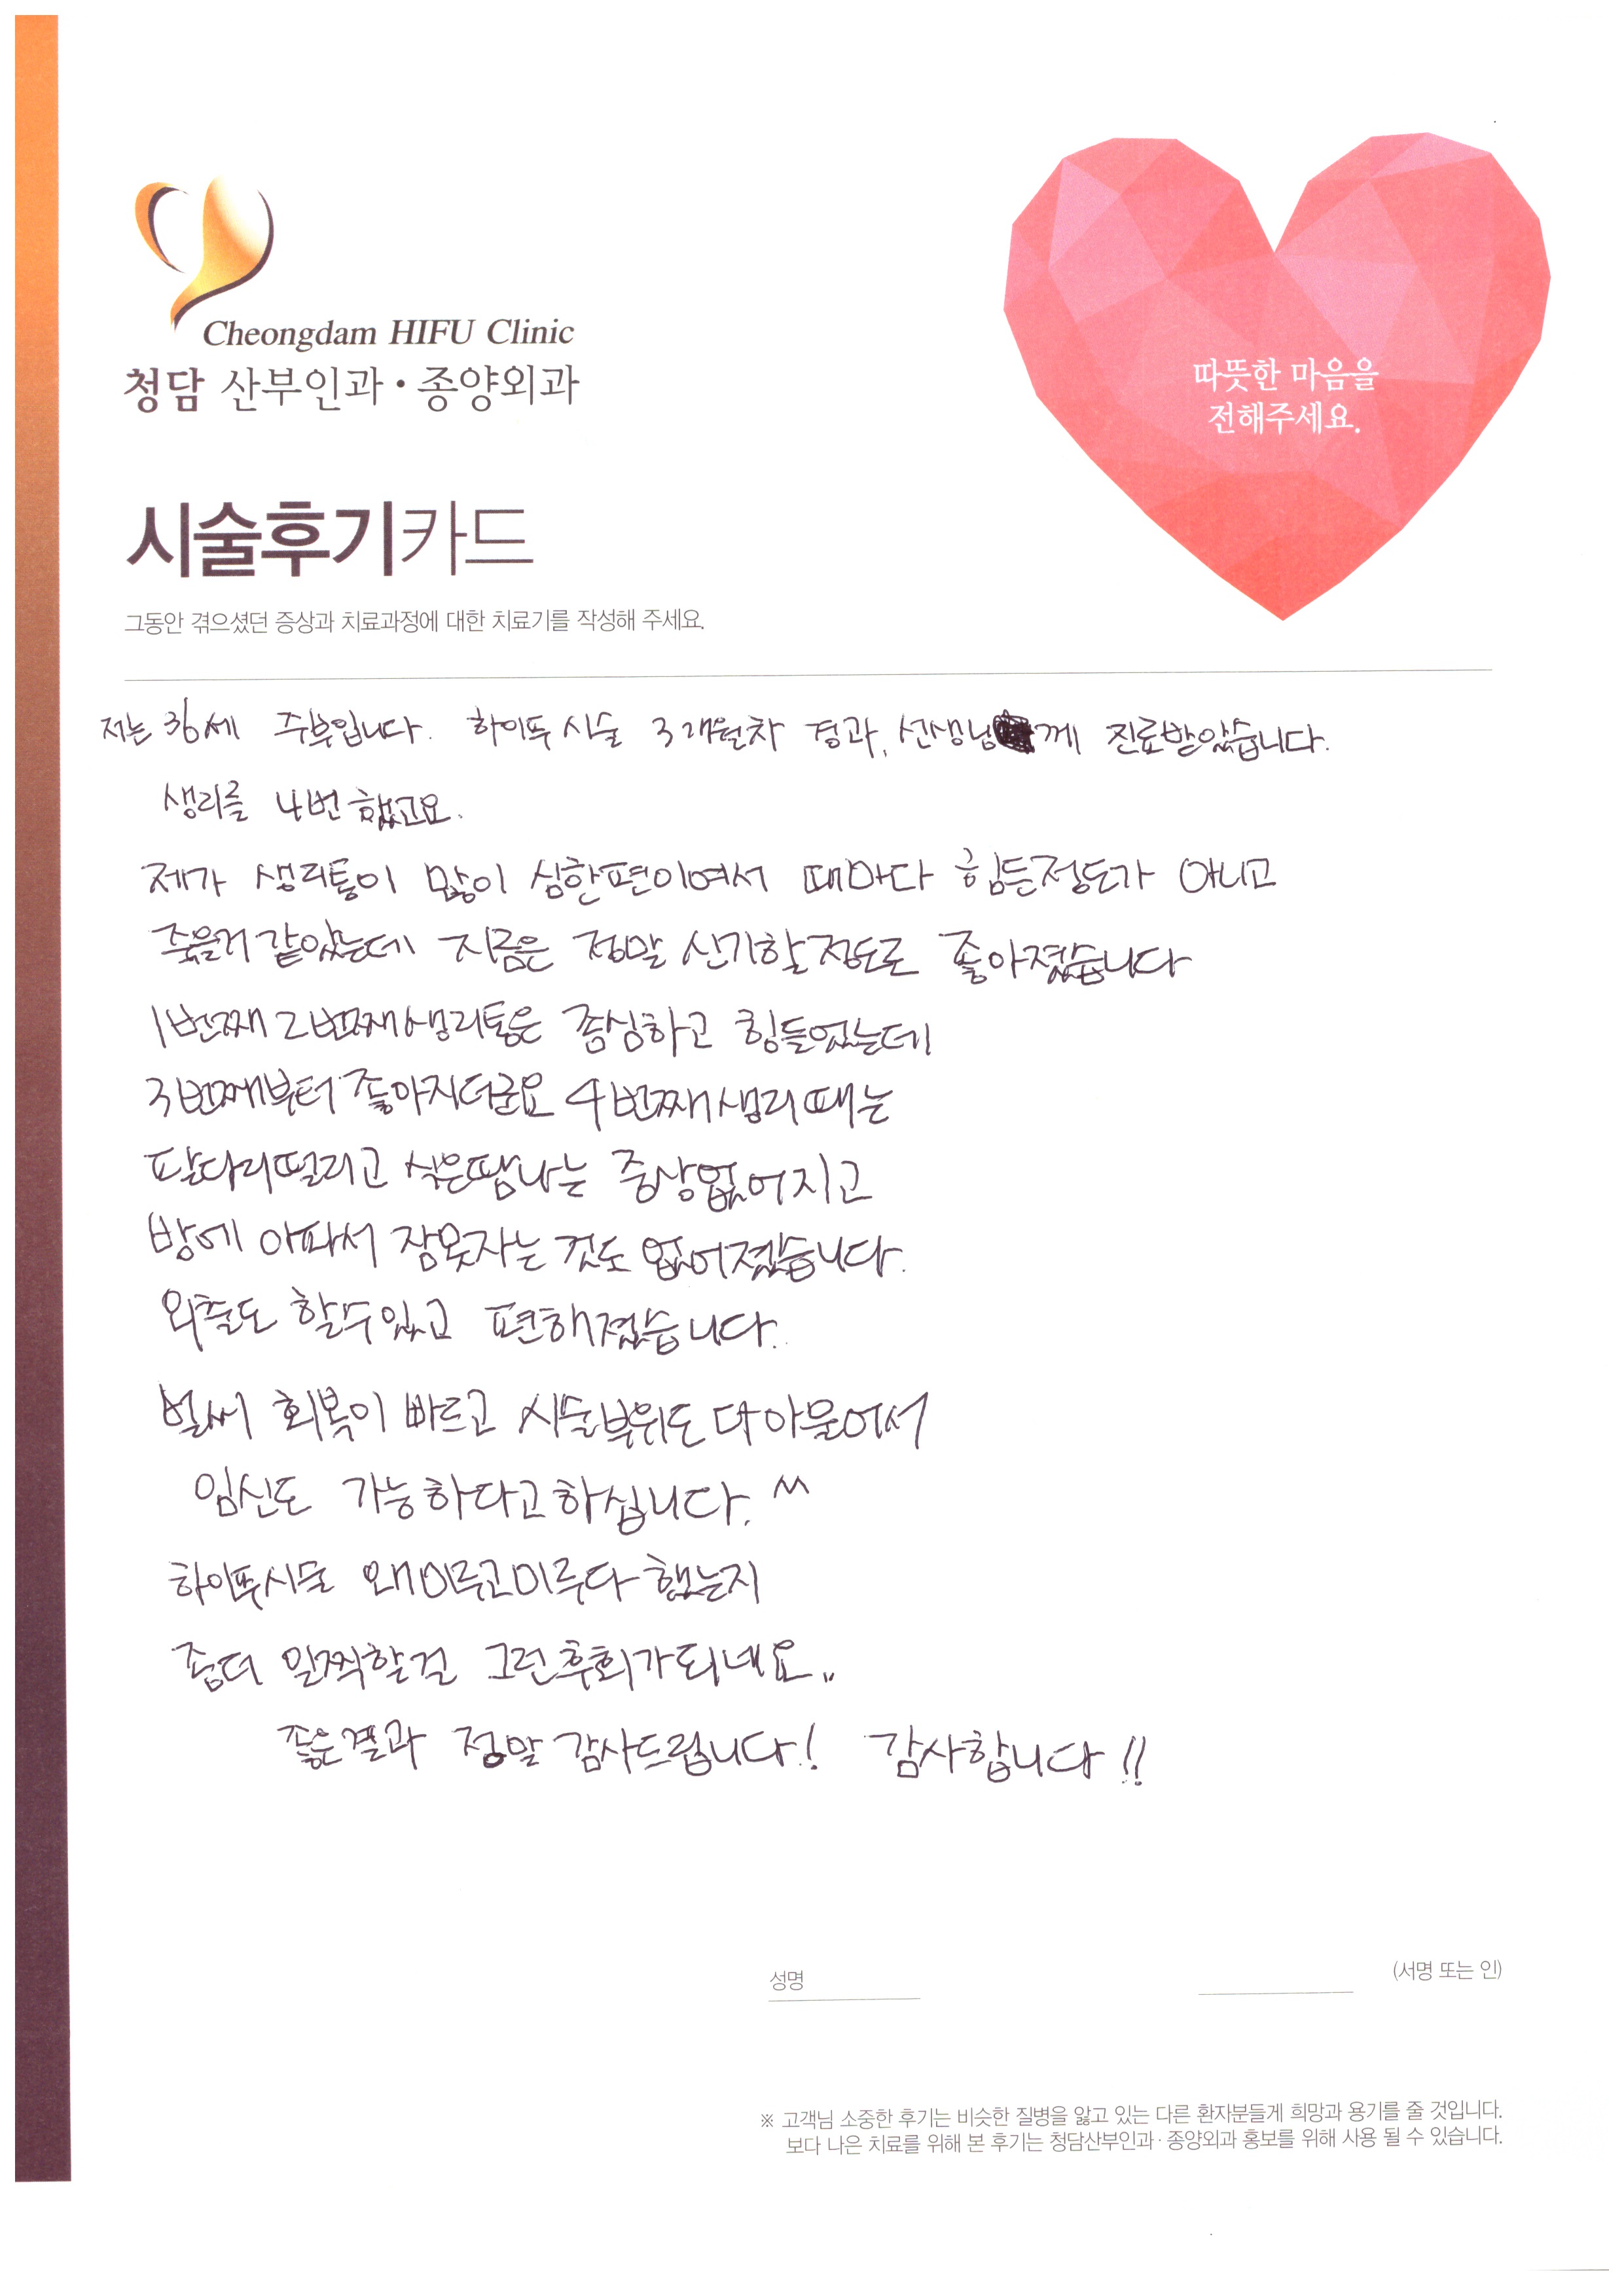 Cheongdam HIFU Clinic
청담 산부인과·종양외과
따뜻한 마음을
전해주세요.
시술후기카드
그동안 겪으셨던 증상과 치료과정에 대한 치료기를 작성해 주세요.
저는 36세 주부입니다. 하이푸 시술 3개월차 경과, 선생님께 진료받았습니다.
생리를 4번 했고요.
제가 생리통이 많이 심한편이여서 때마다 힘든정도가 아니고
죽을거 같았는데 지금은 정말 신기할정도로 좋아졌습니다
1번째 2번째생리통은 좀심하고 힘들었는데
3번째부터 좋아지더군요 4번째생리때는
팔다리떨리고 식은땀나는 증상없어지고
밤에 아파서 잠못자는 것도 없어졌습니다.
외출도 할수있고 편해졌습니다.
벌써 회복이 빠르고 시술부위도 다아물어서
임신도 가능하다고하십니다. ^^
하이푸시술 왜미루고미루다 했는지
좀더 일찍할걸 그런후회가되네요..
좋은결과 정말 감사드립니다! 감사합니다!!
성명
(서명 또는 인)
※ 고객님 소중한 후기는 비슷한 질병을 앓고 있는 다른 환자분들게 희망과 용기를 줄 것입니다.
보다 나은 치료를 위해 본 후기는 청담산부인과·종양외과 홍보를 위해 사용 될 수 있습니다.